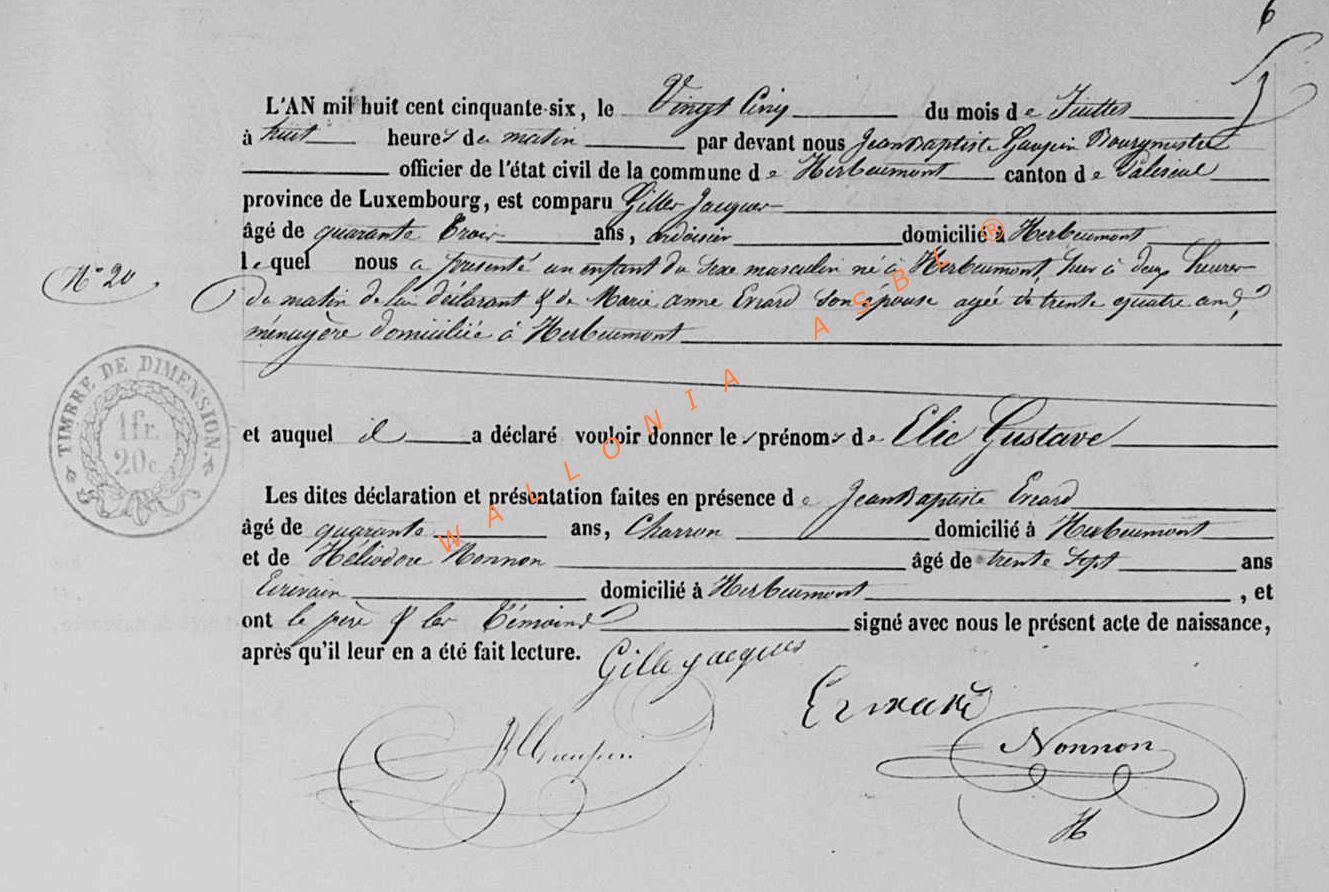 6
L'AN mil huit cent cinquante-six, le Vingt Cinq du mois de Juillet
à huit heures du matin par devant nous Jean Baptiste Gaupin Bourgmestre
officier de l'état civil de la commune de Herbeumont canton de Paliseul
province de Luxembourg, est comparu Gilles Jacques
âgé de quarante Trois ans, ardoisier domicilié à Herbeumont
lequel nous a présenté un enfant du sexe masculin né à Herbeumont, hier à deux heures
N° 20
du matin de lui déclarant & de Marie anne Evrard son épouse agée de trente quatre ans,
ménagère domiciliée à Herbeumont
TIMBRE DE DIMENSION.
1fr.
20c.
et auquel il a déclaré vouloir donner les prénoms de Elie Gustave
Les dites déclaration et présentation faites en présence de Jean Baptiste Evrard
âgé de quarante ans, Charron domicilié à Herbeumont
et de Héliodore Nonnon âgé de trente sept ans
Ecrivain domicilié à Herbeumont, et
ont le père & les Témoins signé avec nous le présent acte de naissance,
après qu'il leur en a été fait lecture.
Gille jacques
Nonnon
H
WALLONIA ASBL ®